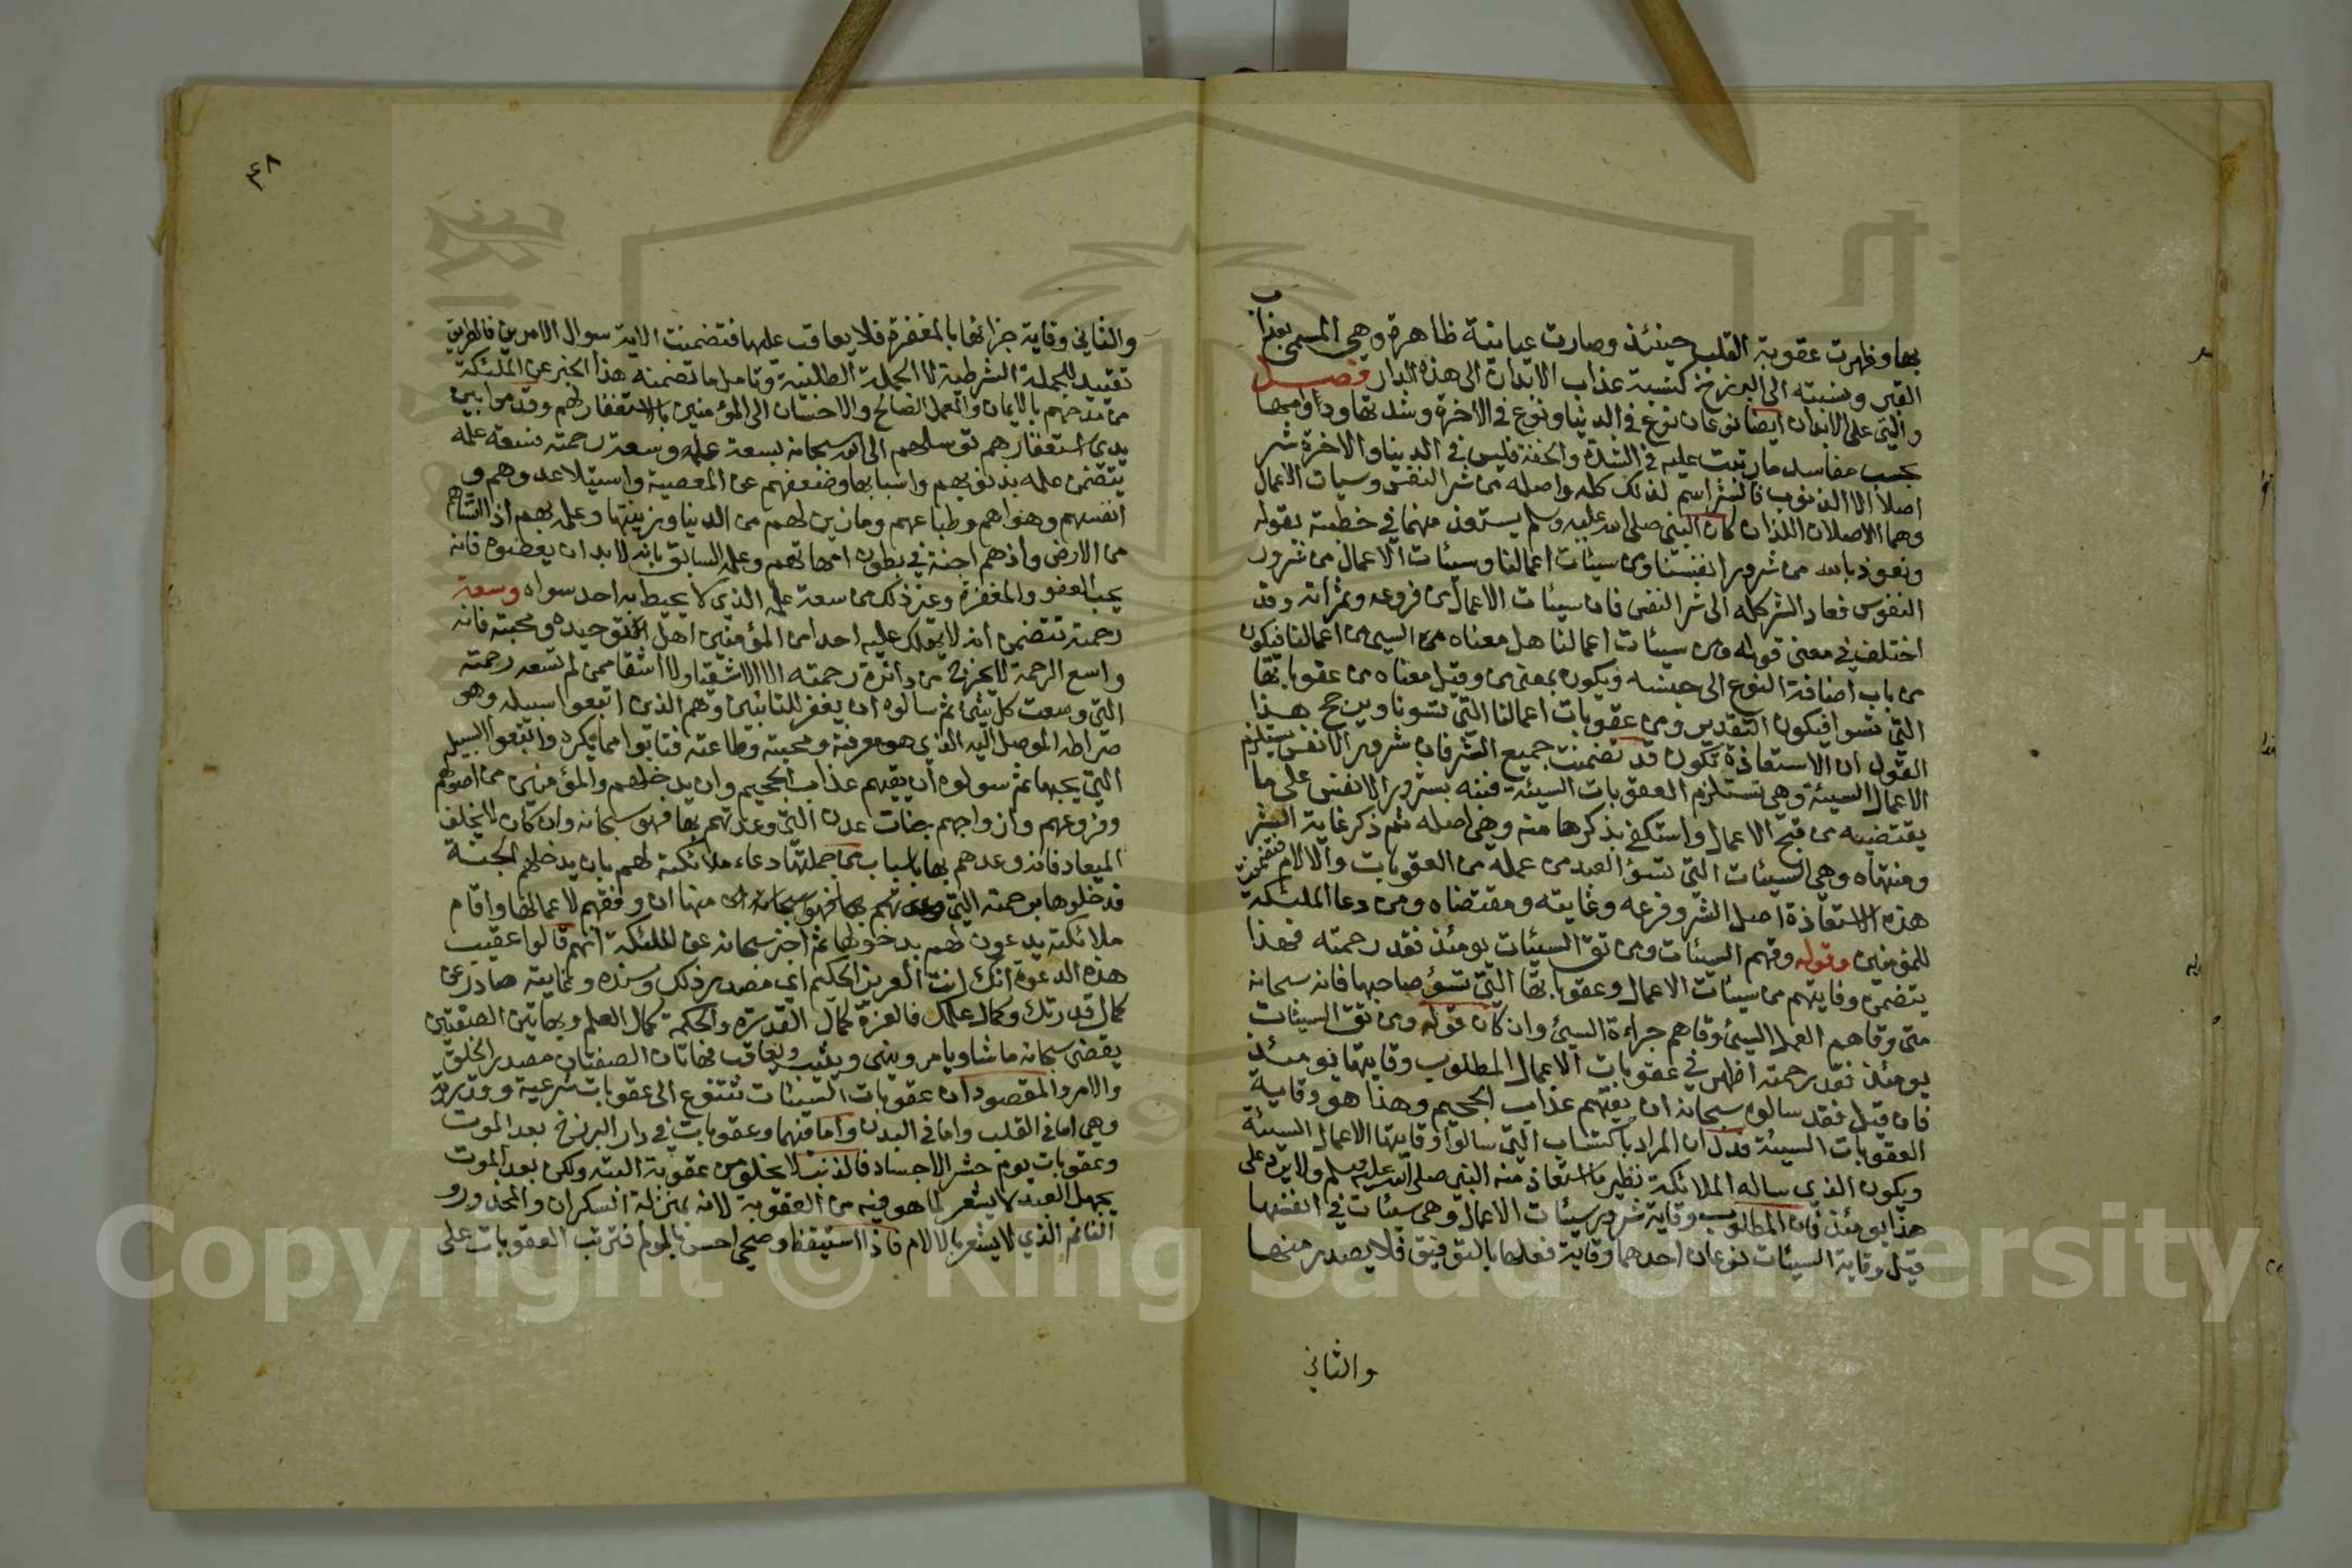 بها وظهرت عقوبة القلب حينئذ وصارت عيانية ظاهرة وهي المسمى بعذاب
القبر ونسبته الى البرزخ كنسبة عذاب الابدان الى هذه الدار فصل
والتي على الابدان ايضا نوعان نوع في الدنيا ونوع في الاخرة وشدتها ودوامها
بحسب مفاسد ما رتبت عليه في الشدة والخفة فليس في الدينا والاخرة شر
اصلا الا الذنوب فالشر اسم لذلك كله واصله من شر النفس وسيات الاعمال
وهما الاصلان اللذان كان النبي صلى الله عليه وسلم يستعوذ منهما في خطبته بقوله
ونعوذ بالله من شرور انفسنا ومن سيئات اعمالنا وسيئات الاعمال من شرور
النفوس فعاد الشر كله الى شر النفس فان سيئات الاعمال من فروعه وثمراته وقد
اختلف في معنى قوله ومن سيئات اعمالنا هل معناه من السيئ من اعمالنا فيكون
من باب اضافة النوع الى جنسه ويكون بمعنى من وقيل معناه من عقوباتها
التي تسوا فيكون التقدير ومن عقوبات اعمالنا التي تسونا ويرجح هذا
القول ان الاستعاذة تكون قد تضمنت جميع الشر فان شرور الانفس يستلزم
الاعمال السيئة وهي تستلزم العقوبات السيئة فنبه بشرور الانفس على ما
يقتضيه من قبح الاعمال واستكفى بذكرها منه وهي اصله ثم ذكر غاية الشر
ومنتهاه وهي السيئات التي تسؤ العبد من عمله من العقوبات والالام فتضمنت
هذه الاستعاذة اصل الشر وفرعه وغايته ومقتضاه ومن دعا الملئكة
للمؤمنين وقوله وقهم السيئات ومن تق السيئات يومئذ فقد رحمته فهذا
يتضمن وقايتهم من سيئات الاعمال وعقوباتها التي تسؤ صاحبها فانه سبحانه
متى وقاهم العمل السيئ وقاهم جزاءه السيئ وان كان قوله ومن تق السيئات
يومئذ فقد رحمته اظهر في عقوبات الاعمال المطلوب وقايتها يومئذ
فان قيل فقد سالوه سبحانه ان يقيهم عذاب الجحيم وهذا هو وقاية
العقوبات السيئة فدل ان المراد بالسيئات التي سالوا وقايتها الاعمال السيئة
ويكون الذي ساله الملائكة نظير ما استعاذ منه النبي صلى الله عليه وسلم ولا يرد على
هذا يومئذ فان المطلوب وقاية شرور سيئات الاعمال وهي سيئات في انفسها
قيل وقاية السيئات نوعان احدهما وقاية فعلها بالتوفيق فلا يصدر منها
والثاني
٤٨
والثاني وقاية جزائها بالمغفرة فلا يعاقب عليها فتضمنت الاية سوال الامرين فالظرف
تقييد للجملة الشرطية لا الجملة الطلبية وتامل ما تضمنه هذا الخبر عن الملئكة
من مدحهم بالايمان والعمل الصالح والاحسان الى المؤمنين بالاستغفار لهم وقدموا بين
يدي استغفارهم توسلهم الى الله سبحانه بسعة علمه وسعة رحمته فسعة علمه
يتضمن علمه بذنوبهم واسبابها وضعفهم عن المعصية واستيلا عدوهم و
انفسهم وهواهم وطباعهم وما زين لهم من الدنيا وزينتها وعلمه بهم اذ انشاهم
من الارض واذهم اجنة في بطون امهاتهم وعلمه السابق بانه لا بد ان يعصوه فانه
يحب العفو والمغفرة وغير ذلك من سعة علمه الذي لا يحيط به احد سواه وسعة
رحمته تتضمن انه لا يهلك عليه احد من المؤمنين اهل توحيده ومحبته فانه
واسع الرحمة لا يخرج من دائرة رحمته الا الاشقيا ولا اشقا ممن لم تسعه رحمته
التي وسعت كل شئ ثم سالوه ان يغفر للتائبين وهم الذين اتبعوا سبيله وهو
صراطه الموصل اليه الذي هو معرفته ومحبته وطاعته فتابوا مما يكره واتبعوا السبيل
التي يحبها ثم سولوه ان يقيهم عذاب الجحيم وان يدخلهم والمؤمنين من اصولهم
وفروعهم وازواجهم جنات عدن التي وعدتهم بها فهو سبحانه وان كان لا يخلف
الميعاد فانه وعدهم بها باسباب من جملتها دعاء ملائكته لهم بان يدخلهم الجنة
فدخلوها برحمته التي منها ان وفقهم لاعمالها واقام
ملائكته يدعون لهم بدخولها ثم اخبر سبحانه عن الملئكة انهم قالوا عقيب
هذه الدعوة انك انت العزيز الحكيم اي مصدر ذلك وسنده وغايته صادر عن
كمال قدرتك وكمال علمك فالعزة كمال القدرة والحكمة كمال العلم وبهاتين الصفتين
يقضى سبحانه ما شا ويامر وينهى ويثيب ويعاقب فهاتان الصفتان مصدر الخلق
والامر والمقصود ان عقوبات السيئات تتنوع الى عقوبات شرعية وقدرية
وهي اما في القلب واما في البدن واما فيهما وعقوبات في دار البرزخ بعد الموت
وعقوبات يوم حشر الاجساد فالذنب لا يخلو من عقوبة البتة ولكن بعد الموت
يجهل العبد لا يشعر لما هو فيه من العقوبة لانه بمنزلة السكران والمخدور و
النائم الذي لا يشعر بالالام فاذا استيقظ وصحى احس بالمولم فترتب العقوبات على
Copyright © King Saud University